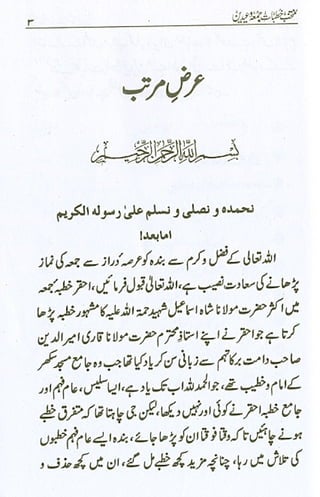 منتخب خطبات جمعہ و عیدین
۳
عرضِ مرتب
بسم اللہ الرحمن الرحیم
نحمدہ و نصلی و نسلم علیٰ رسولہ الکریم
امابعد!
اللہ تعالیٰ کے فضل و کرم سے بندہ کو عرصہ دراز سے جمعہ کی نماز
پڑھانے کی سعادت نصیب ہے، اللہ تعالیٰ قبول فرمائیں، احقر خطبۂ جمعہ
میں اکثر حضرت مولانا شاہ اسماعیل شہید رحمۃ اللہ علیہ کا مشہور خطبہ پڑھا
کرتا ہے جو احقر نے اپنے استاذ محترم حضرت مولانا قاری امیر الدین
صاحب دامت برکاتہم سے زبانی سن کر یاد کیا تھا جب وہ جامع مسجد سکھر
کے امام و خطیب تھے، جو الحمدللہ اب تک یاد ہے، ایسا سلیس، عام فہم اور
جامع خطبہ احقر نے کوئی اور نہیں دیکھا، لیکن جی چاہتا تھا کہ متفرق خطبے
ہونے چاہئیں تاکہ وقتاً فوقتاً ان کو پڑھا جائے، بندہ ایسے عام فہم خطبوں
کی تلاش میں رہا، چنانچہ مزید کچھ خطبے مل گئے، ان میں کچھ حذف و